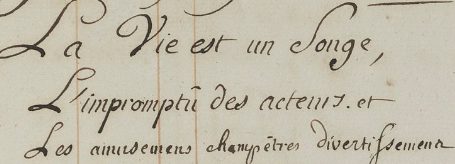 La Vie est un Songe,
L'impromptû des acteurs. et
Les amusemens champêtres divertissement